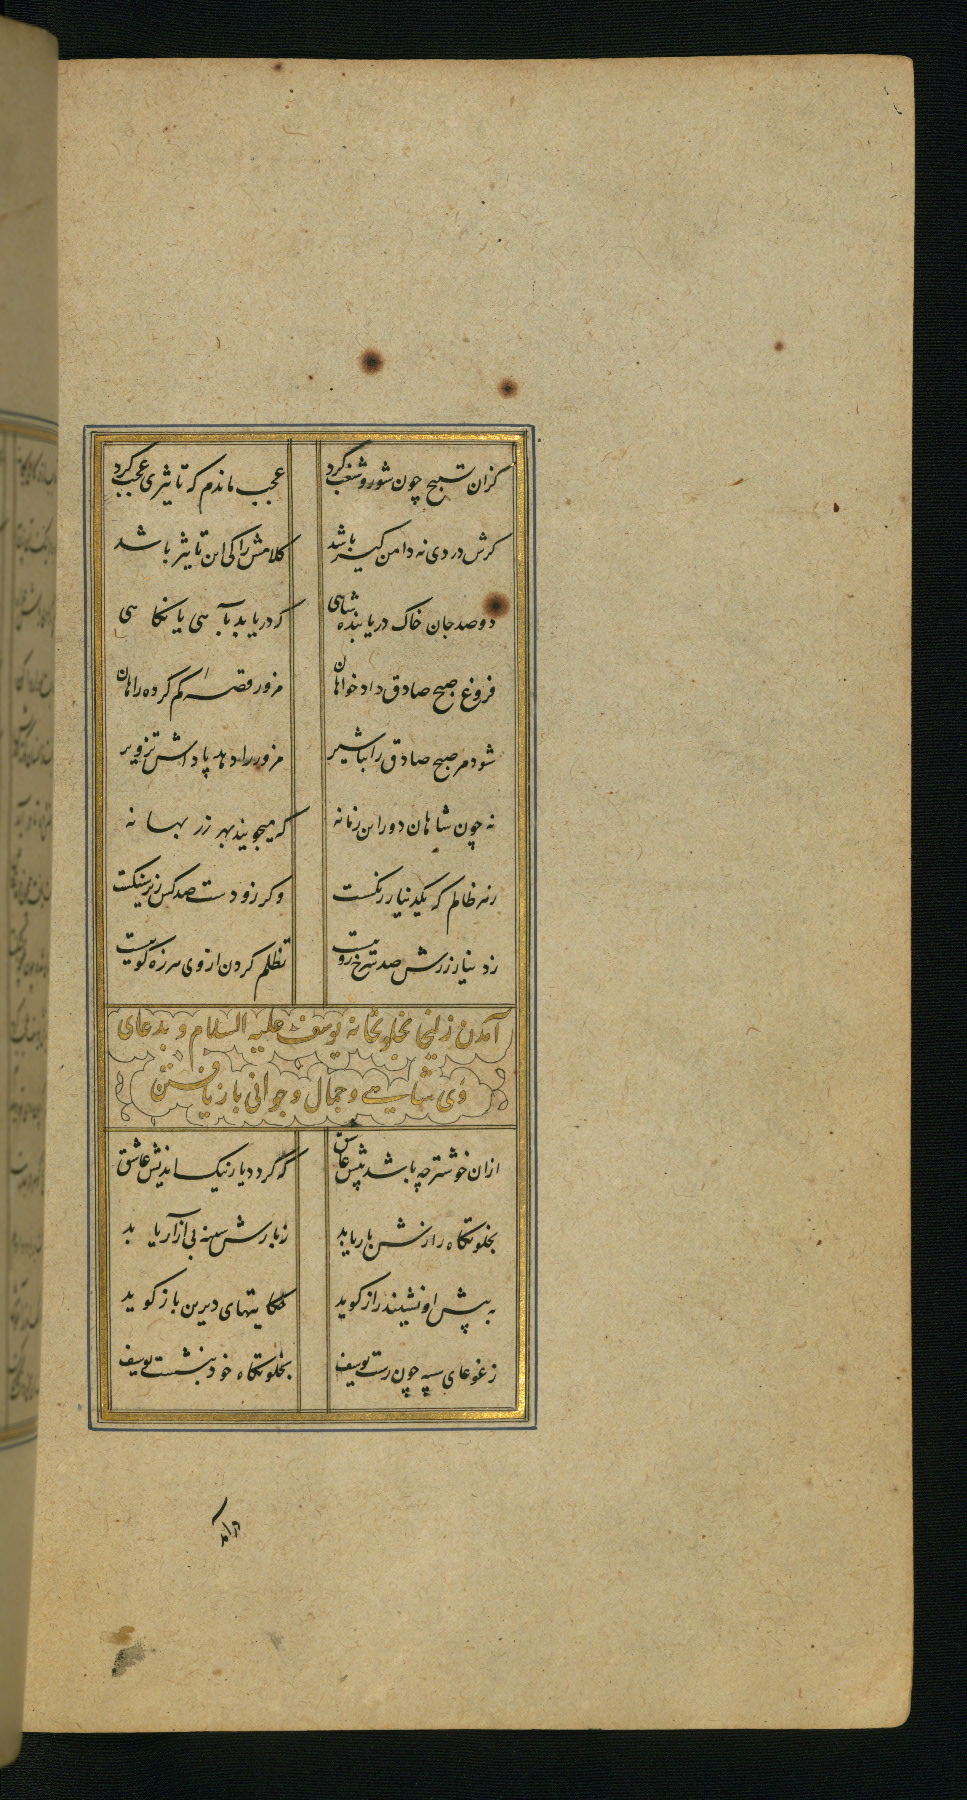 کزان تسبیح چون شور و شغب کرد عجب ماندم که تاثیری عجب کرد
کرش دردی نه دامن کیر باشد کلامش را کی این تاثیر باشد
دو صد جان خاک دریابنده شاهی که دریابد بآهی یا نکاهی
فروغ صبح صادق داد خواهان مزور قصه کم کرده راهان
شود مر صبح صادق را تباشیر مزور را دهد پاداش تزویر
نه چون شاهان دور این زمانه که میجویند بهر زر بهانه
رنه ظالم که یکدینار رنکست وکر زو دست صد کس زیر سنکست
زدینار زرش صد سرخ روییست تظلم کردن از وی هرزه کوییست
آمدن زلیخا بخلوتخانه یوسف علیه السلام و بدعای
وی بینایی و جمال و جوانی باز یافتن
ازان خوشتر چه باشد پیش عاشق که کردد یار نیک اندیش عاشق
بخلوتکاه رازش بار یابد زبارش سینه بی آزار یابد
به پیش او نشیند راز کوید حکایتهای دیرین باز کوید
ز غوغای سپه چون رست یوسف بخلوتکاه خود بنشست یوسف
درآمد